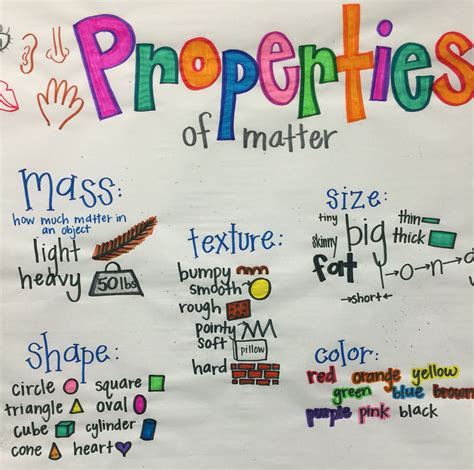 Properties
of matter
mass:
how much matter in
an object
light
heavy
50lbs
texture:
bumpy
smooth
rough
pointy
soft
pillow
hard
size:
tiny
skinny
fat
big
thin
thick
y→o→n→d
→short←
shape:
circle square
triangle oval
cube cylinder
cone heart
color:
red orange yellow
green blue brown
purple pink black